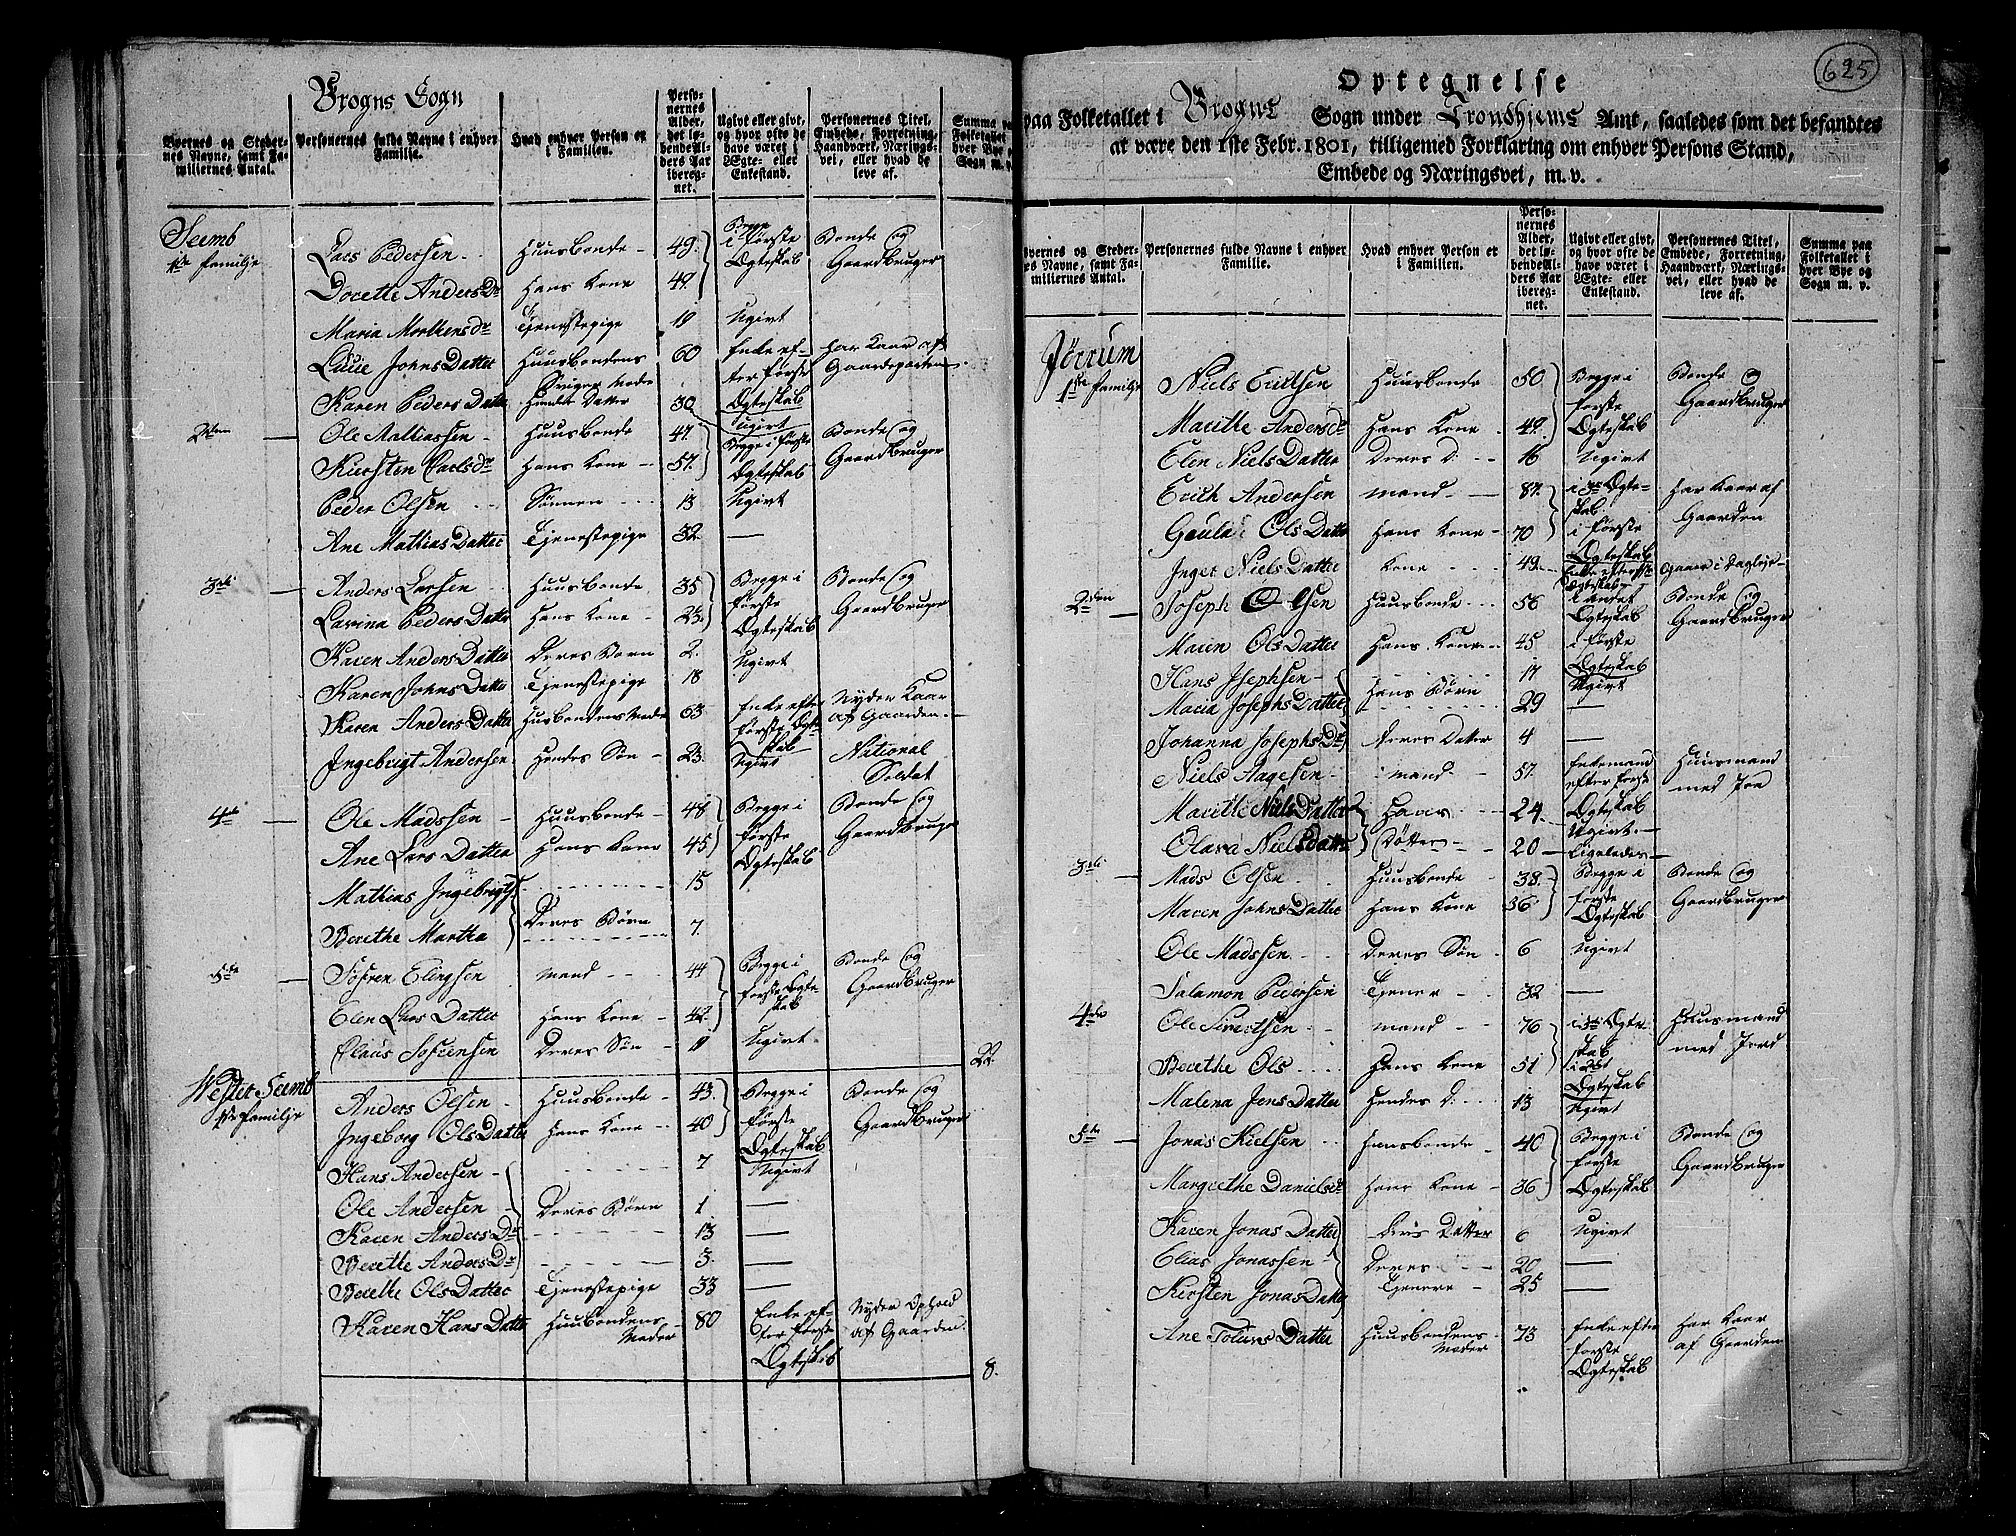 Vrogns Sogn
Byernes og Steder-
nes Navne, samt Fa-
miliernes Antal.
Personernes fulde Navne i enhver
Familie.
Hvad enhver Person er
i Familien.
Perso-
nernes
Alder,
det lø-
bende Al-
ders Aar
ibereg-
net.
Ugivt eller givt,
og hvor ofte de
have været i
Ægte- eller
Enkestand.
Personernes Titel,
Embede, Forretning,
Haandværk, Nærings-
vei, eller hvad de
leve af.
Summa paa
Folketallet
hver Bye og
Sogn m. v.
Seemb
1ste familje
Lars Pedersen Huusbonde 49 Begge i første Ægteskab Bonde og Gaardbruger
Dorette Anders Dr Hans Kone 49
Maria Morthens dr Tjenestepige 19 Ugivt
Lucie Johns Datter Huusbondens Sviger Moder 60 Enke efter første Ægteskab Har Kaar af Gaardeparten
Karen Peders Datter Hendes Datter 30 Ugivt
2den Ole Mathiassen Huusbonde 47 Begge i første Ægteskab Bonde og Gaardbruger
Kiersten Carls dr Hans Kone 57
Peder Olsen Sønnen 13 Ugivt
Ane Mathias Datter Tjenestepige 32 —
3die Anders Larsen Huusbonde 35 Begge i første Ægteskab Bonde og Gaardbruger
Lavina Peders Datter Hans Kone 23
Karen Anders Datter Deres Barn 2 Ugivt
Karen Johns Datter Tjenestepige 18
Karen Anders Datter Husbondens Moder 63 Enke efter første Ægteskab Nyder Kaar af Gaarden
Ingebrigt Andersen Hendes Søn 23 Ugivt National Soldat
4de Ole Madssen Huusbonde 48 Begge i første Ægteskab Bonde og Gaardbruger
Ane Lars Datter Hans Kone 45
Mathias Ingebrigts 15
Berethe Martha Deres Børn 7
5te Sofren Elingsen Mand 44 Begge i første Ægteskab Bonde og Gaardbruger
Elen Lars Datter Hans Kone 42
Claus Sofrensen Deres Søn 11 Ugivt
22
Wester Seemb
1ste Familje
Anders Olsen Huusbonde 43 Begge i første Ægteskab Bonde og Gaardbruger
Ingeborg Ols Datter Hans Kone 40
Hans Andersen 7 Ugivt
Ole Andersen Deres Børn 1 —
Karen Anders Dr 13 —
Berette Anders Dr 3 —
Berethe Ols Datter Tjenestepige 33 —
Karen Hans Datter Huusbondens Moder 80 Enke efter første Ægteskab Nyder Ophold af Gaarden
8.
625
Optegnelse
paa Folketallet i Vrogns Sogn under Trondhjems Amt, saaledes som det befandtes
at være den 1ste Febr. 1801, tilligemed Forklaring om enhver Persons Stand,
Embede og Næringsvei, m. v.
Byernes og Steder-
nes Navne, samt Fa-
miliernes Antal.
Personernes fulde Navne i enhver
Familie.
Hvad enhver Person er
i Familien.
Perso-
nernes
Alder,
det lø-
bende Al-
ders Aar
ibereg-
net.
Ugivt eller givt,
og hvor ofte de
have været i
Ægte- eller
Enkestand.
Personernes Titel,
Embede, Forretning,
Haandværk, Nærings-
vei, eller hvad de
leve af.
Summa paa
Folketallet i
hver Bye og
Sogn m. v.
Jørrum
1ste familje Niels Erittsen Huusbonde 50 Begge i første Ægteskab Bonde og Gaardbruger
Marithe Anders dr Hans Kone 49
Elen Niels Datter Deres D. 16 Ugivt
Erich Andersen Mand 87 i 3die Ægteskab Har Kaar af Gaarden
Gaula Ols Datter Hans Kone 70 i første Ægteskab
Inger Niels Datter Kone 49
2den Joseph Olsen Huusbonde 56 i andet Ægteskab Bonde og Gaardbruger
Maren Ols Datter Hans Kone 45 i første Ægteskab
Hans Josephsen Hans Børn 17 Ugivt
Maria Josephs Datter 29 —
Johanna Josephs Dr Deres Datter 4 —
Niels Aagesen Mand 57 Enkemand efter første Ægteskab Huusmand med Jord
Marithe Niels Datter Hans 24 Ugivt
Olava Niels Datter Døttre 20 Ligeledes
3die Mads Olsen Huusbonde 38 Begge i første Ægteskab Bonde og Gaardbruger
Maren Johns Datter Hans Kone 36
Ole Madssen Deres Søn 6 Ugivt
Salamon Pedersen Tjener 32 —
4de Ole Sivertsen Mand 76 i 3die Ægteskab Huusmand med Jord
Berethe Ols Hans Kone 51 i 2det Ægteskab
Malena Jens Datter Hendes D. 13 Ugivt
5te Jonas Nielsen Huusbonde 40 Begge i første Ægteskab Bonde og Gaardbruger
Margrethe Daniels dr Hans Kone 36
Karen Jonas Datter Datter 6 Ugivt
Elias Jonassen Deres 20 —
Kirsten Jonas Datter Tjenere 25 —
Ane Datter Huusbondens Moder 73 Enke efter første Ægteskab Har Kaar af Gaarden